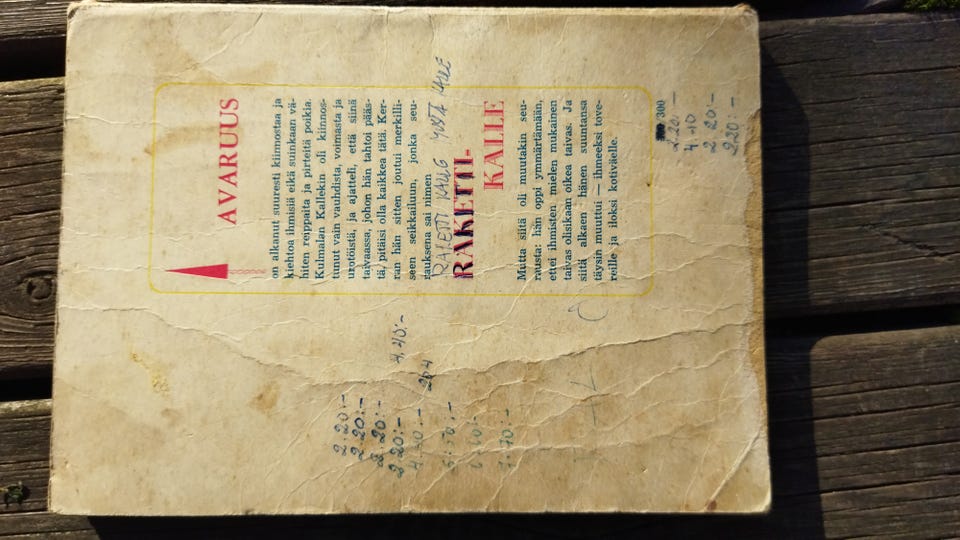 AVARUUS
on alkanut suuresti kiinnostaa ja
kiehtoa ihmisiä eikä suinkaan vä-
hiten reppaita ja pirteitä poikia.
Kulmalan Kallekin oli kiinnos-
tunut vain vauhdista, voimasta ja
urotöistä, ja ajatteli, että siinä
taivaassa, johon hän tahtoi pääs-
tä, pitäisi olla kaikkea tätä. Ker-
ran hän sitten joutui merkilli-
seen seikkailuun, jonka seu-
rauksena sai nimen
RAKETTI-
KALLE
Mutta siitä oli muutakin seu-
rausta: hän oppi ymmärtämään,
ettei ihmisten mielen mukainen
taivas olisikaan oikea taivas. Ja
siitä alkaen hänen suuntansa
täysin muuttui — ihmeeksi tove-
reille ja iloksi kotiväelle.
300
2.20:-
4.40
2 20:-
2.20:-
2.20:-
2.20:-
2.20:-
2.20:-
4.40:-